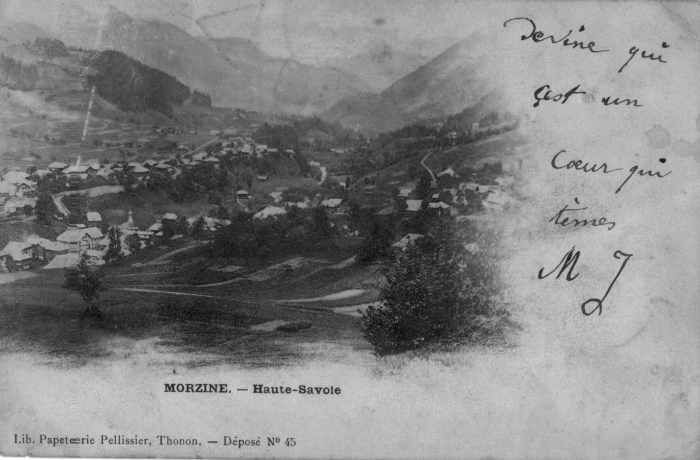 Devine qui
çest un
Cœur qui
têmes
M J
MORZINE. — Haute-Savoie
Lib. Papetœrie Pellissier, Thonon. — Déposé Nº 45